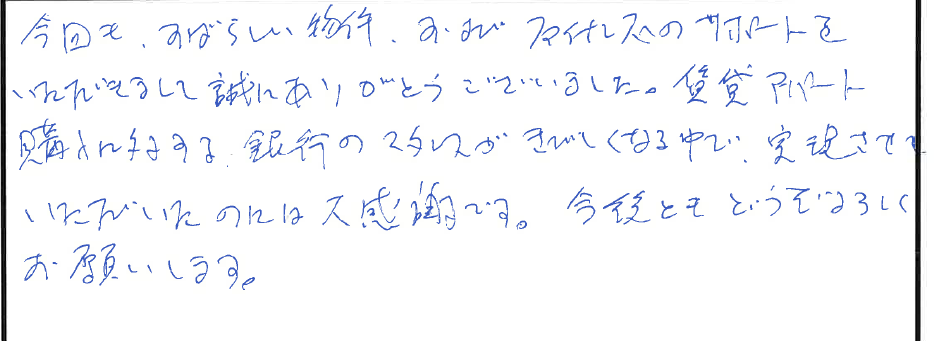 今回も、すばらしい物件、および ファイナンスへのサポートを
いただきまして誠にありがとうございました。賃貸アパート
購入に対する、銀行のスタンスがきびしくなる中で、実現させて
いただいたのには大感謝です。今後ともどうぞよろしく
お願いします。